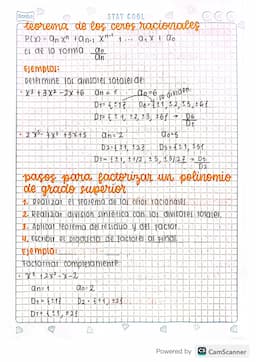 START COOL
teorema de los ceros racionales
P(x) = aₙxⁿ + aₙ₋₁xⁿ⁻¹ + ... a₁x + a₀
es de la forma a₀/aₙ
Ejemplo:
Determine los divisores totales de:
aₙ = 1 a₀ = 6
D₁= {±1} D₆= {±1, ±2, ±3, ±6}
Dt= {±1, ±2, ±3, ±6} → D₆/D₁
aₙ = 2 a₀ = 5
D₂= {±1, ±2} D₅= {±1, ±5}
pasos para factorizar un polinomio
de grado superior
1. Realizar el teorema de los ceros racionales
2. Realizar división sintética con los divisores totales.
3. Aplicar teorema del residuo y del factor.
4. Escribir el producto de factores al final.
Ejemplo:
Factorizar completamente:
aₙ= 1 a₀= 2
D₁= {±1} D₂= {±1, ±2}
Dt= {±1, ±2}
Powered by CS CamScanner